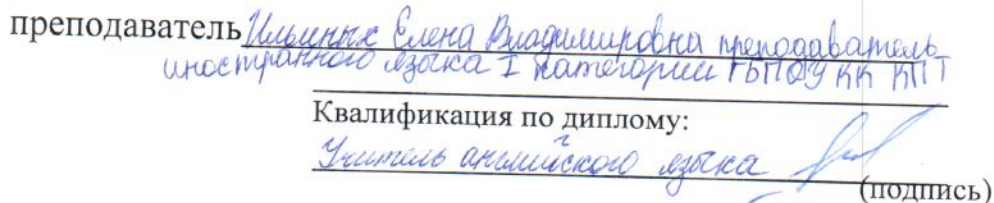 преподаватель Ильиных Елена Владимировна преподаватель
иностранного языка I категории ГБПОУ КК КПТ
Квалификация по диплому:
Учитель английского языка
(подпись)